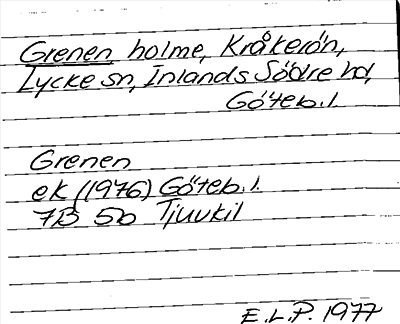 Grenen holme, Kråkerön,
Lycke sn, Inlands Södre hd,
Göteb. l.
Grenen
ek (1976) Göteb. l.
7B 5b Tjuvkil
E.L.P. 1977